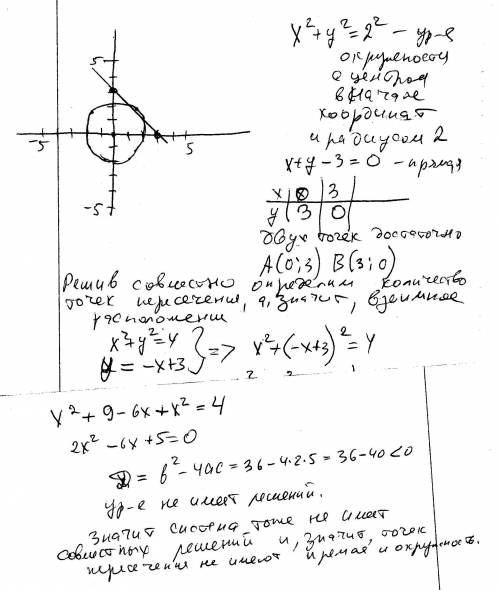 x²+y²=2² – ур-е
окружности
с центром
в начале
координат
и радиусом 2
x+y-3=0 – прямая
x | 0 | 3
y | 3 | 0
двух точек достаточно
A(0;3) B(3;0)
5
-5
5
-5
Решив совместно определим количество
точек пересечения, а, значит, взаимное
расположение
x²+y²=4
y = -x+3 } => x²+(-x+3)²=4
x²+9-6x+x²=4
2x²-6x+5=0
D = b²-4ac = 36-4·2·5 = 36-40<0
ур-е не имеет решений.
Значит система тоже не имеет
совместных решений и, значит, точек
пересечения не имеют прямая и окружность.